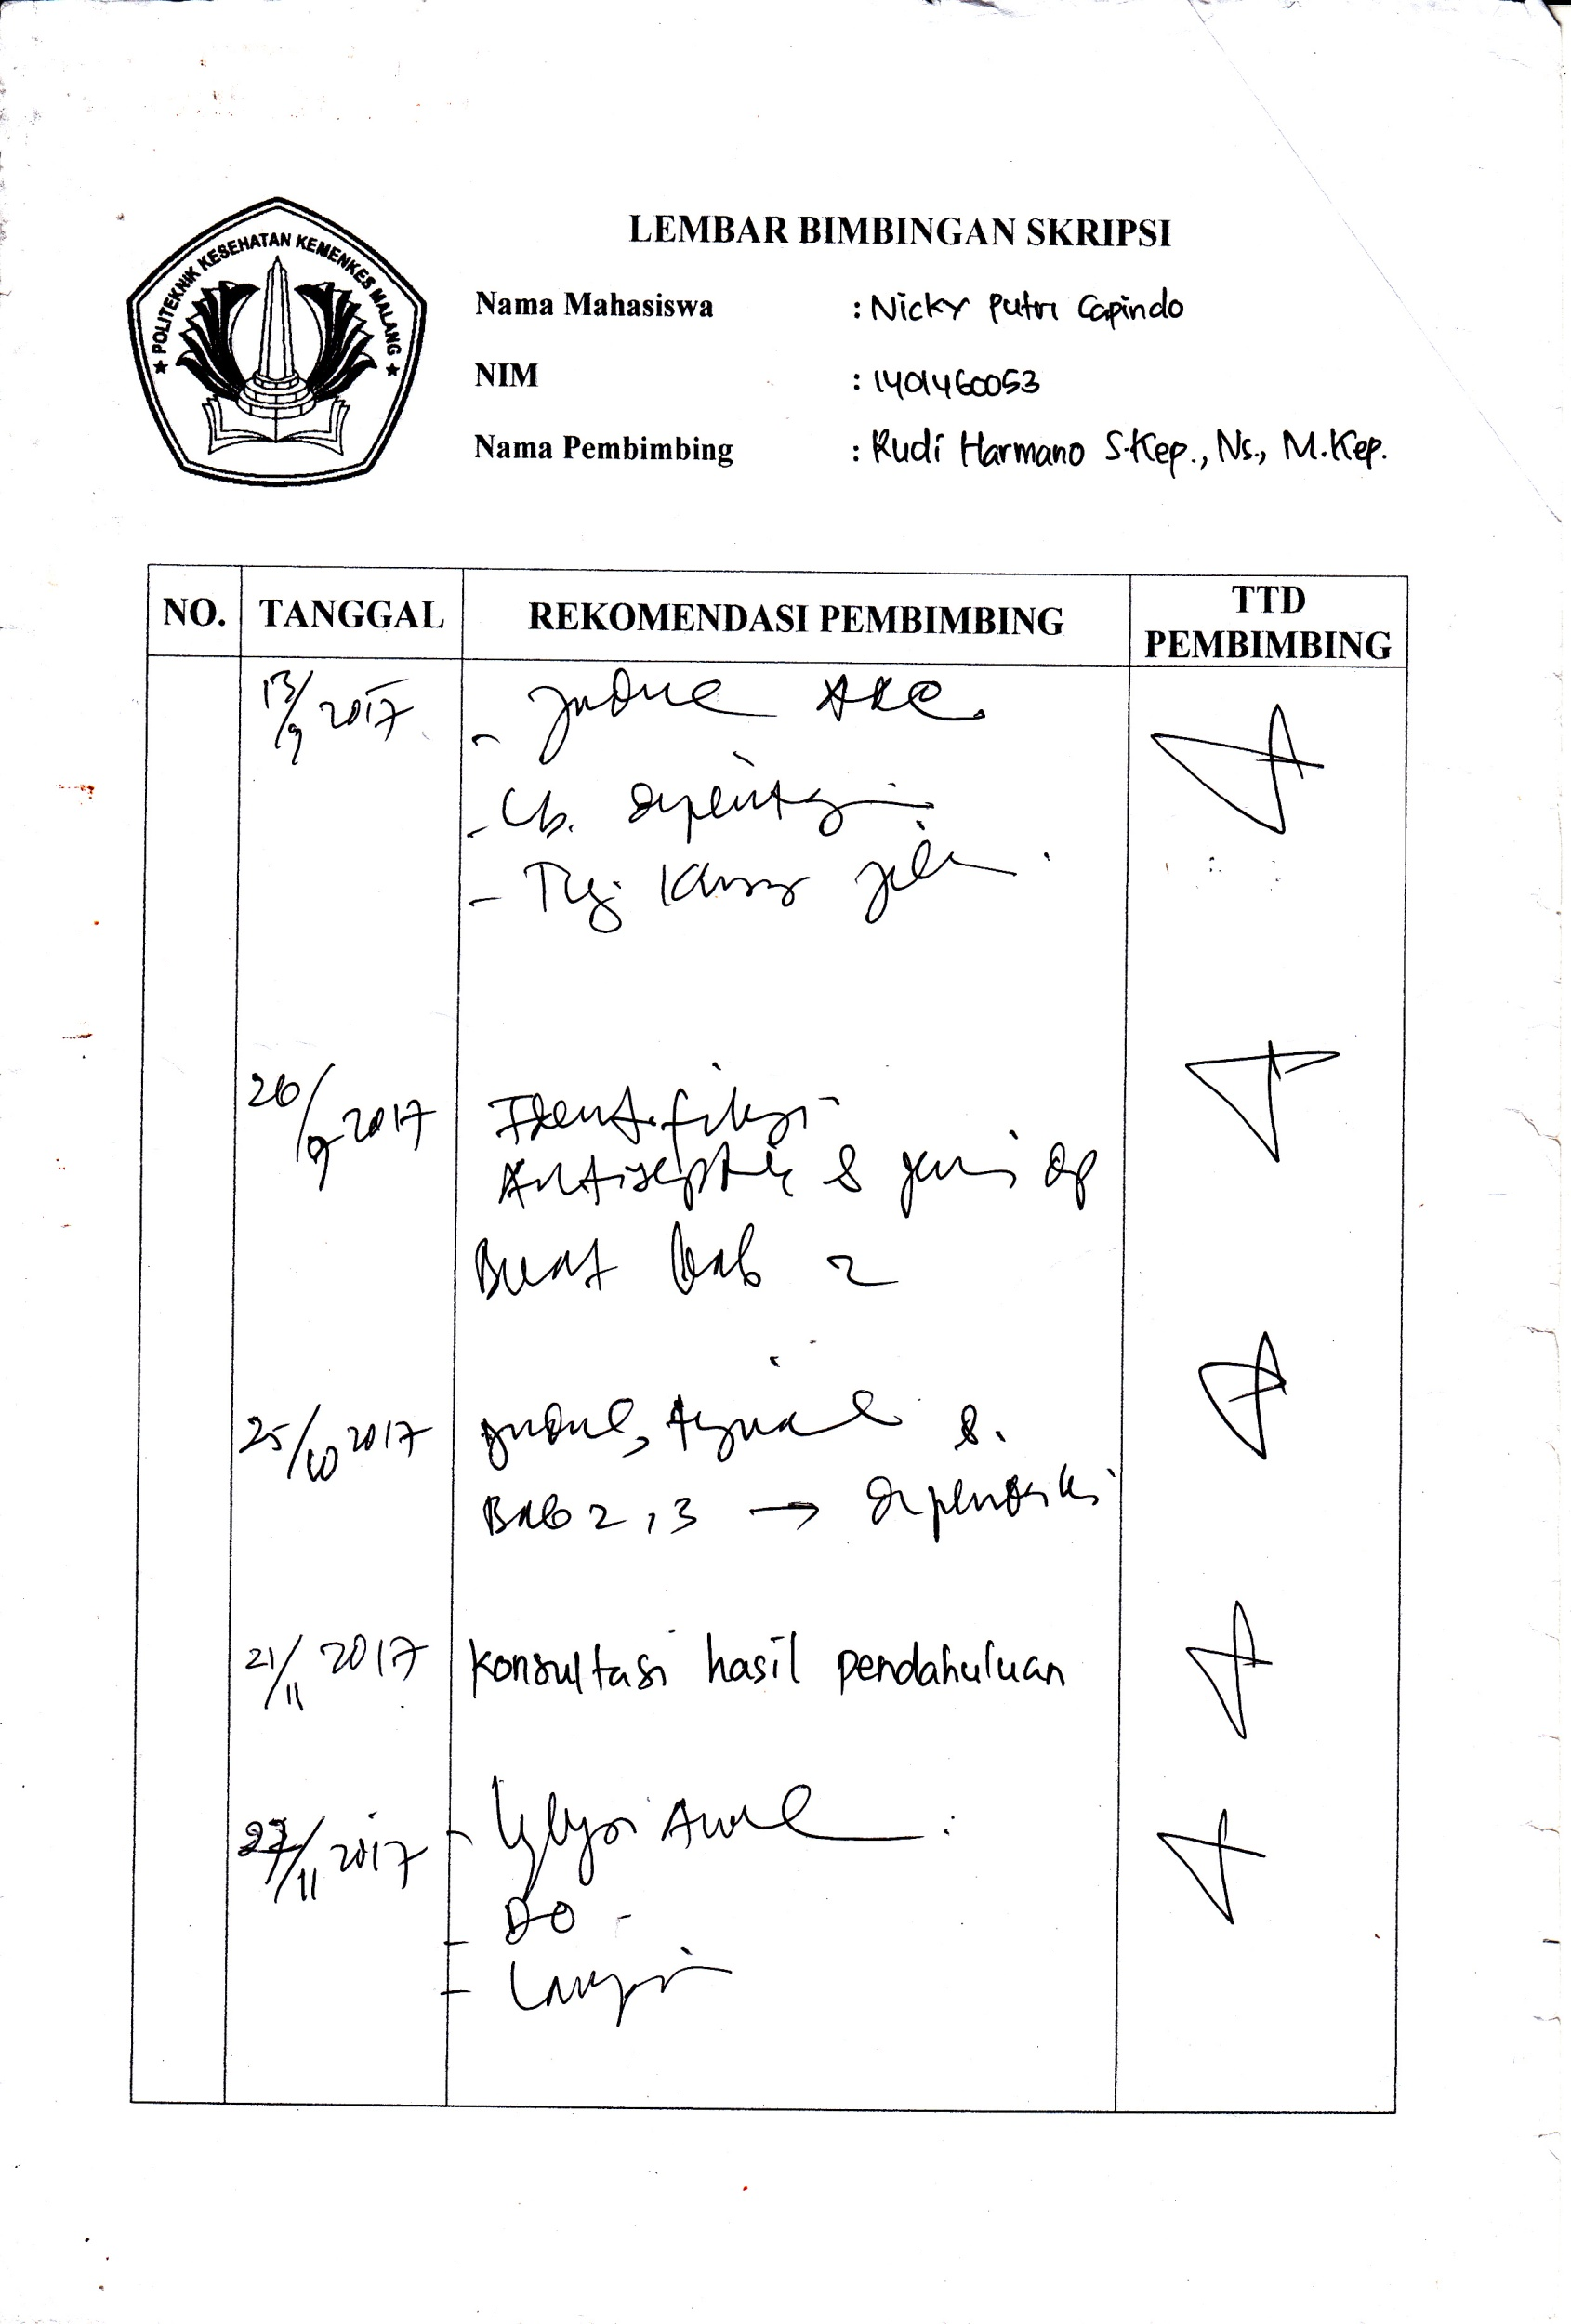 POLITEKNIK KESEHATAN KEMENKES MALANG
LEMBAR BIMBINGAN SKRIPSI
Nama Mahasiswa : Nicky Putri Capindo
NIM : 1401460053
Nama Pembimbing : Rudi Harmano S.Kep., Ns., M.Kep.
NO. TANGGAL REKOMENDASI PEMBIMBING TTD PEMBIMBING
13/9 2017 - Judul Acc.
-
-
26/9 2017 Identifikasi
Antiseptik & jenis op
Buat bab 2
25/10 2017 Judul, &
Bab 2, 3 →
21/11 2017 Konsultasi hasil pendahuluan
27/11 2017 -
- DO
- Lampiran